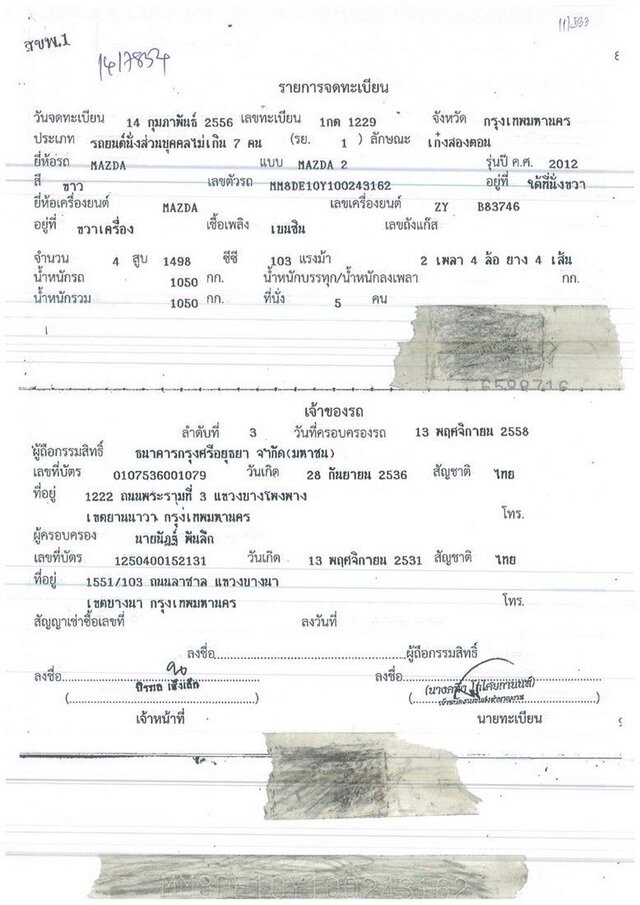 สขพ.1
11/533
14/7854
รายการจดทะเบียน
วันจดทะเบียน 14 กุมภาพันธ์ 2556 เลขทะเบียน 1กต 1229 จังหวัด กรุงเทพมหานคร
ประเภท รถยนต์นั่งส่วนบุคคลไม่เกิน 7 คน (รย. 1 ) ลักษณะ เก๋งสองตอน
ยี่ห้อรถ MAZDA แบบ MAZDA 2 รุ่นปี ค.ศ. 2012
สี ขาว เลขตัวรถ MM8DE10Y100243162 อยู่ที่ ใต้ที่นั่งขวา
ยี่ห้อเครื่องยนต์ MAZDA เลขเครื่องยนต์ ZY B83746
อยู่ที่ ขวาเครื่อง เชื้อเพลิง เบนซิน เลขถังแก๊ส
จำนวน 4 สูบ 1498 ซีซี 103 แรงม้า 2 เพลา 4 ล้อ ยาง 4 เส้น
น้ำหนักรถ 1050 กก. น้ำหนักบรรทุก/น้ำหนักลงเพลา กก.
น้ำหนักรวม 1050 กก. ที่นั่ง 5 คน
เจ้าของรถ
ลำดับที่ 3 วันที่ครอบครองรถ 13 พฤศจิกายน 2558
ผู้ถือกรรมสิทธิ์ ธนาคารกรุงศรีอยุธยา จำกัด(มหาชน)
เลขที่บัตร 0107536001079 วันเกิด 28 กันยายน 2536 สัญชาติ ไทย
ที่อยู่ 1222 ถนนพระรามที่ 3 แขวงบางโพงพาง
เขตยานนาวา กรุงเทพมหานคร โทร.
ผู้ครอบครอง นายนัฏฐ์ พันลึก
เลขที่บัตร 1250400152131 วันเกิด 13 พฤศจิกายน 2531 สัญชาติ ไทย
ที่อยู่ 1551/103 ถนนลาซาล แขวงบางนา
เขตบางนา กรุงเทพมหานคร โทร.
สัญญาเช่าซื้อเลขที่ ลงวันที่
ลงชื่อ ผู้ถือกรรมสิทธิ์
ลงชื่อ ลงชื่อ
เจ้าหน้าที่ นายทะเบียน
MM8DE10Y100243162